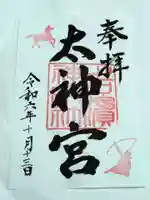 奉拝
太神宮
令和六年十月十三日